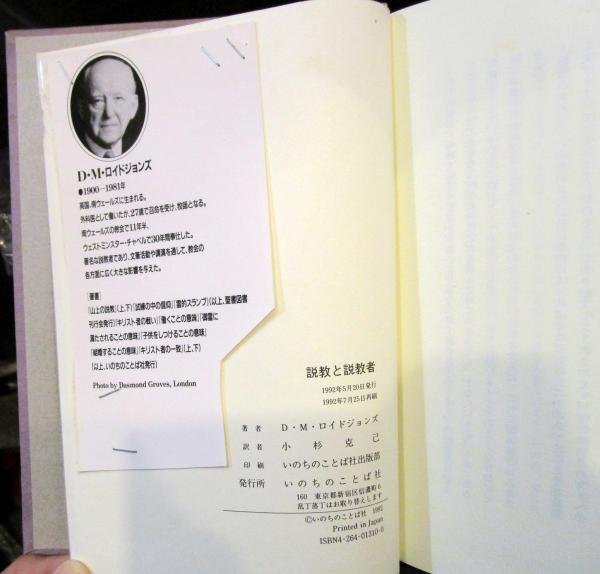 D・M・ロイドジョンズ
●1900—1981年
英国、南ウェールズに生まれる。
外科医として働いたが、27歳で召命を受け、牧師となる。
南ウェールズの教会で11年半、
ウェストミンスター・チャペルで30年間奉仕した。
著名な説教者であり、文筆活動や講演を通して、教会の
各方面に広く大きな影響を与えた。
［著書］
「山上の説教」(上、下)「試練の中の信仰」「霊的スランプ」(以上、聖書図書
刊行会発行)「キリスト者の戦い」「働くことの意味」「御霊に
満たされることの意味」「子供をしつけることの意味」
「結婚することの意味」「キリスト者の一致」(上、下)
(以上、いのちのことば社発行)
Photo by Dasmond Groves, London
説教と説教者
1992年5月20日発行
1992年7月25日再刷
著者 D・M・ロイドジョンズ
訳者 小杉克己
印刷 いのちのことば社出版部
発行所 いのちのことば社
160 東京都新宿区信濃町6
乱丁落丁はお取り替えします
©いのちのことば社 1992
Printed in Japan
ISBN4-264-01310-0